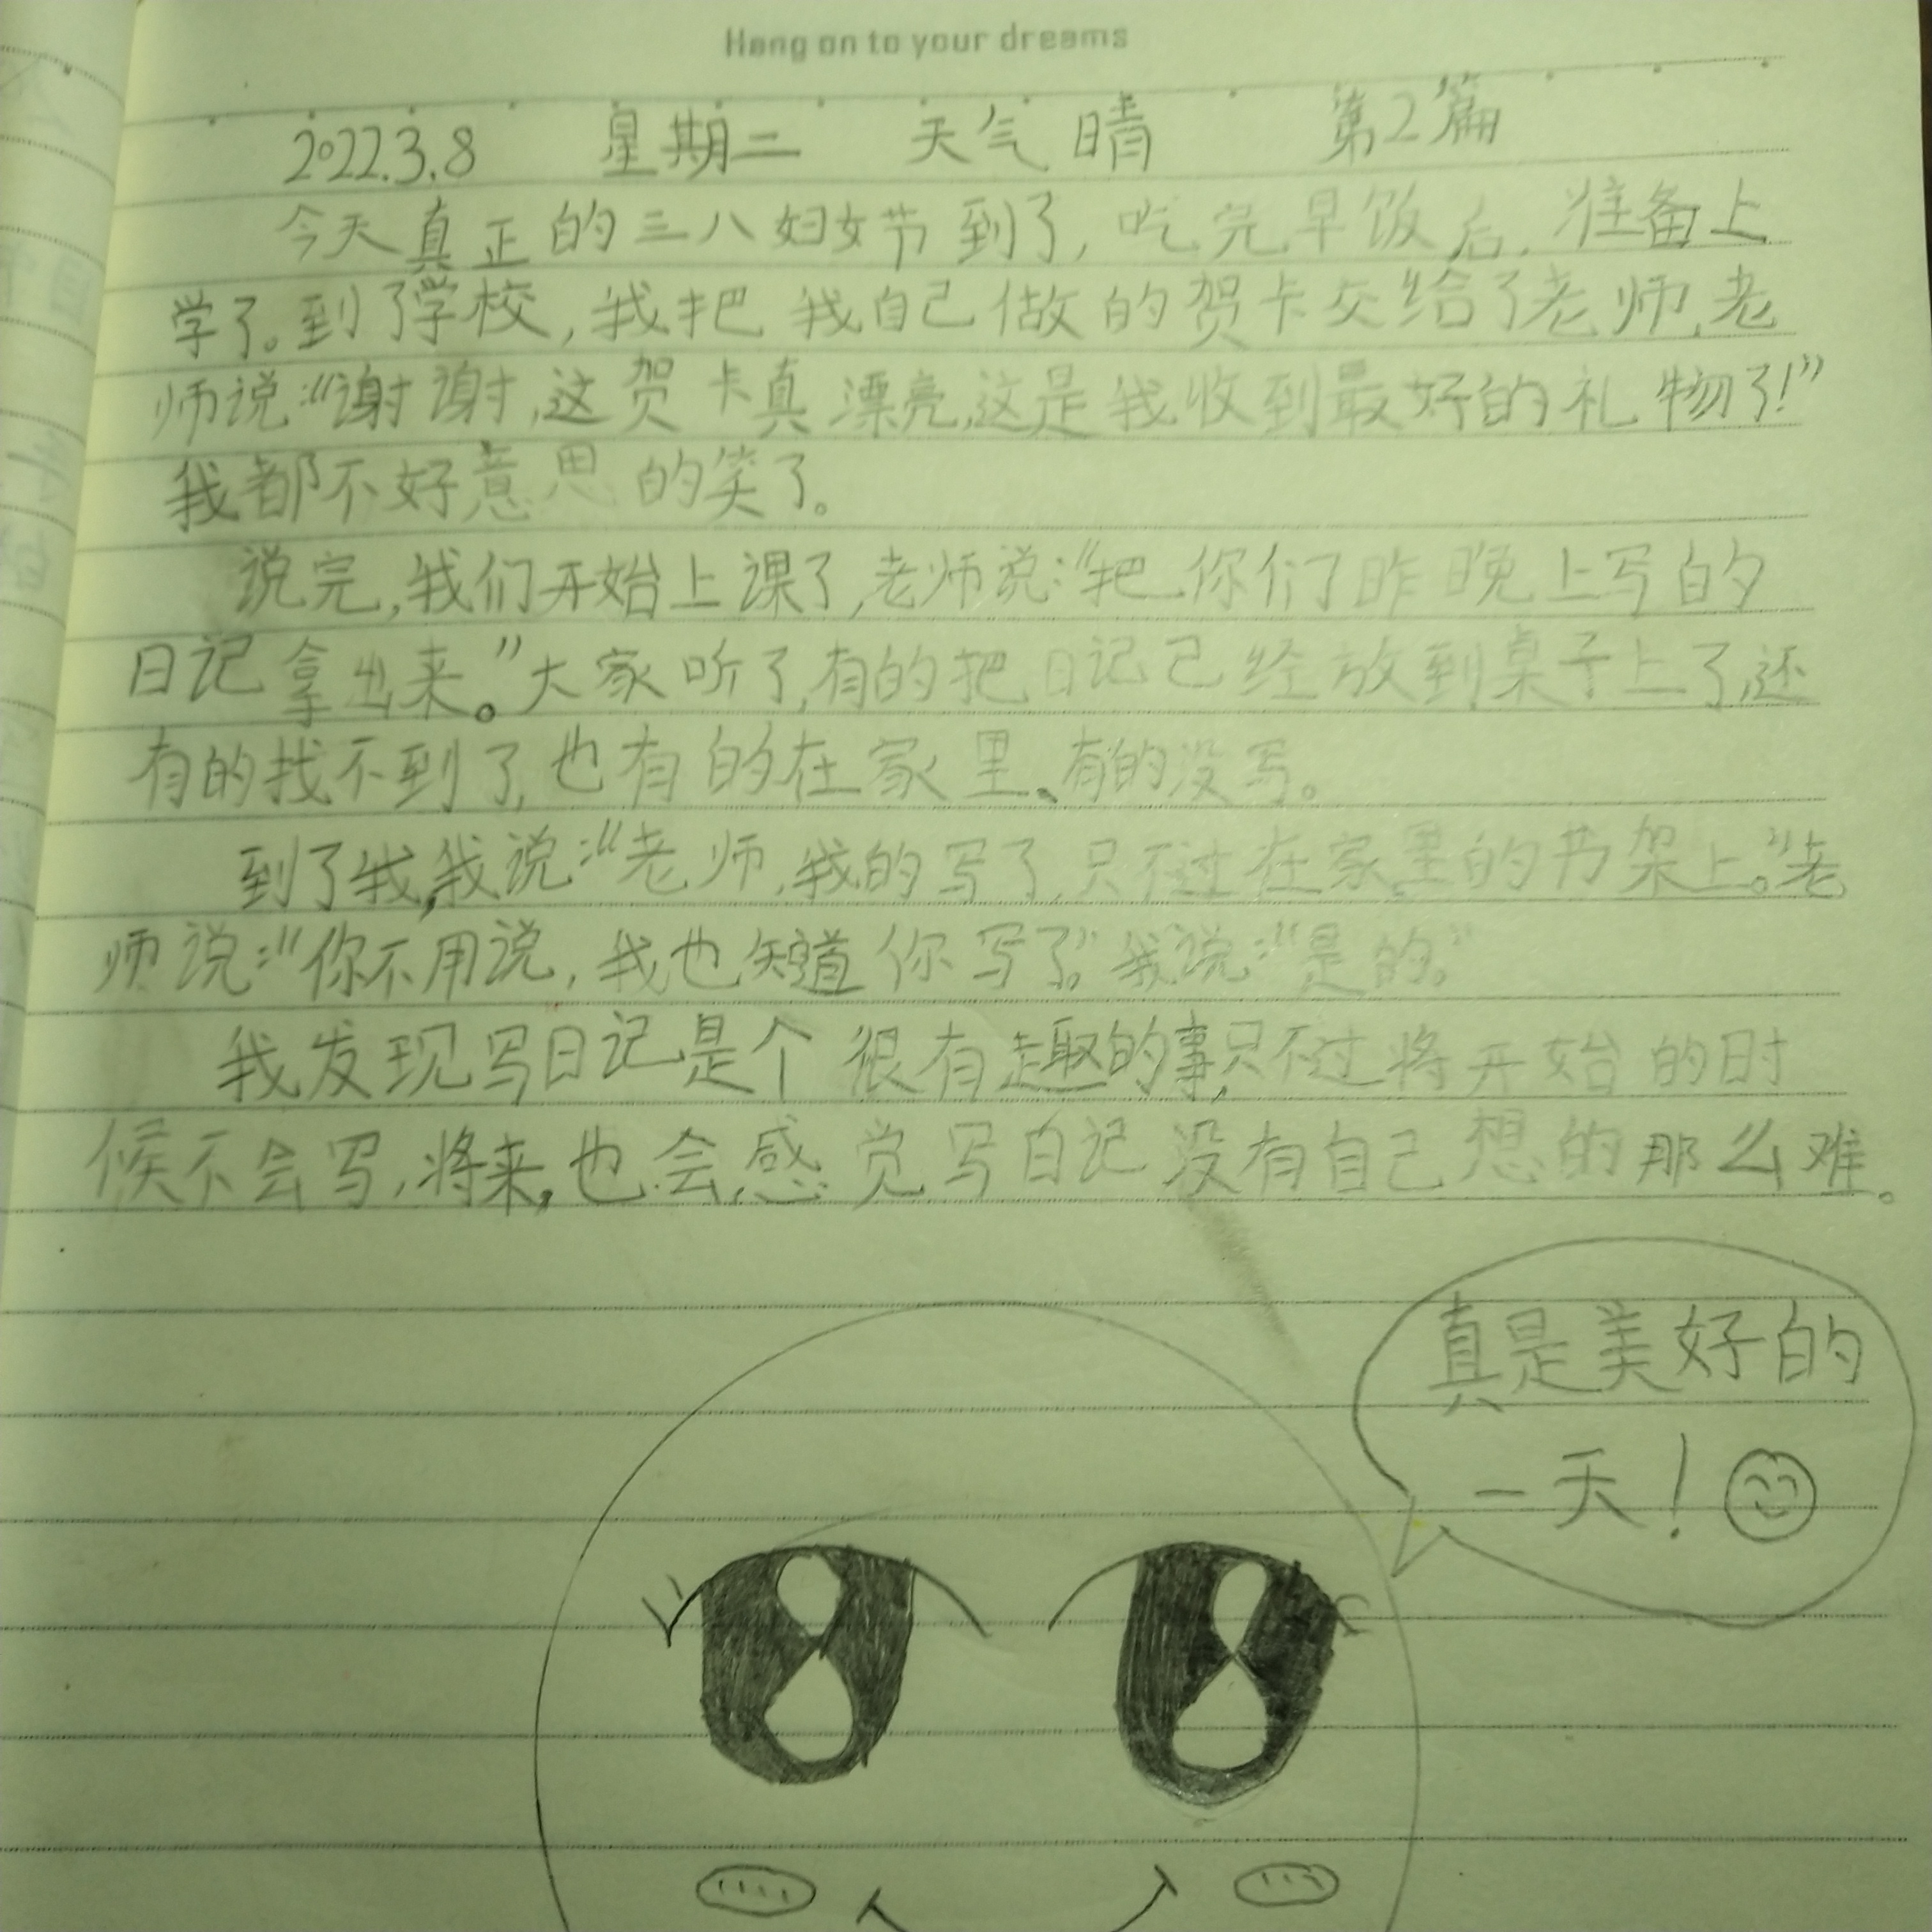 Hang on to your dreams
2022.3.8 星期二 天气晴 第2篇
今天真正的三八妇女节到了,吃完早饭后,准备上
学了。到了学校,我把我自己做的贺卡交给了老师,老
师说:“谢谢,这贺卡真漂亮,这是我收到最好的礼物了!”
我都不好意思的笑了。
说完,我们开始上课了,老师说:“把你们昨晚上写的
日记拿出来。”大家听了,有的把日记已经放到桌子上了,还
有的找不到了,也有的在家里、有的没写。
到了我,我说:“老师,我的写了,只不过在家里的书架上。”老
师说:“你不用说,我也知道你写了。”我说:“是的。”
我发现写日记是个很有趣的事,只不过将开始的时
候不会写,将来,也会感觉写日记没有自己想的那么难。
真是美好的
一天!